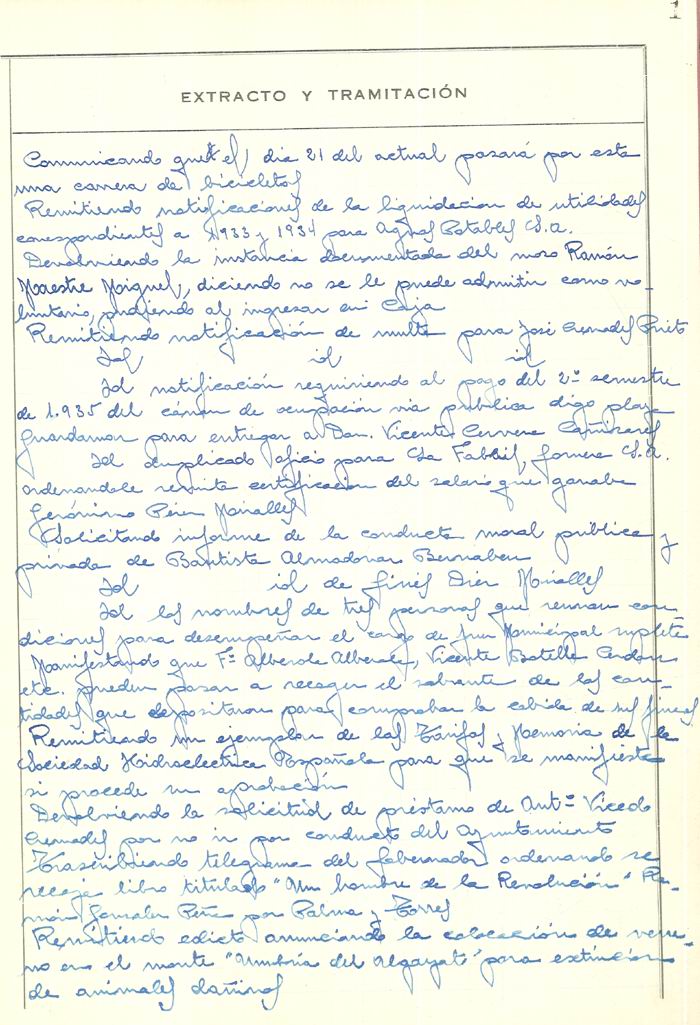 1
EXTRACTO Y TRAMITACIÓN
Comunicando que el dia 21 del actual pasará por esta
una carrera de bicicletas
Remitiendo notificaciones de la liquidacion de utilidades
correspondientes a 1933 y 1934 para Aguas Potables S.a.
Devolviendo la instancia documentada del mozo Ramón
Maestre Miguel, diciendo no se le puede admitir como vo-
luntario, pudiendo al ingresar en Caja
Remitiendo notificación de multa para José Cremades Prieto
Id id id
Id notificación requiriendo al pago del 2º semestre
de 1.935 del cánon de ocupación via publica digo playa
Guardamar para entregar a Don. Vicente Cervera Cañizares
Id duplicado oficio para La Fabril, S.a.
ordenandole remita certificacion del salario que ganaba
Gerónimo Pérez Miralles
Solicitando informe de la conducta moral pública y
privada de Bautista Almodovar Bernabeu
Id id de Ginés Dier Miralles
Id los nombres de tres personas que reunan con-
diciones para desempeñar el cargo de Juez Municipal suplente
Manifestando que Fº Alberola Alberola, Vicente Botella
etc. pueden pasar a recoger el sobrante de las can-
tidades que depositaron para comprobar la cabida de sus fincas
Remitiendo un ejemplar de las Tarifas y Memoria de la
Sociedad Hidroelectrica Española para que se manifieste
si procede su aprobación
Devolviendo la solicitud de préstamo de Antº Vicedo
Cremades por no ir por conducto del Ayuntamiento
Trascribiendo telegrama del Gobernador ordenando se
recoga libro titulado "Un hombre de la Revolución" Ra-
món Gonzalez Peña por Palma y Torres
Remitiendo edicto anunciando la colocación de vene-
no en el monte "Umbria del Algayat" para extincion
de animales dañinos